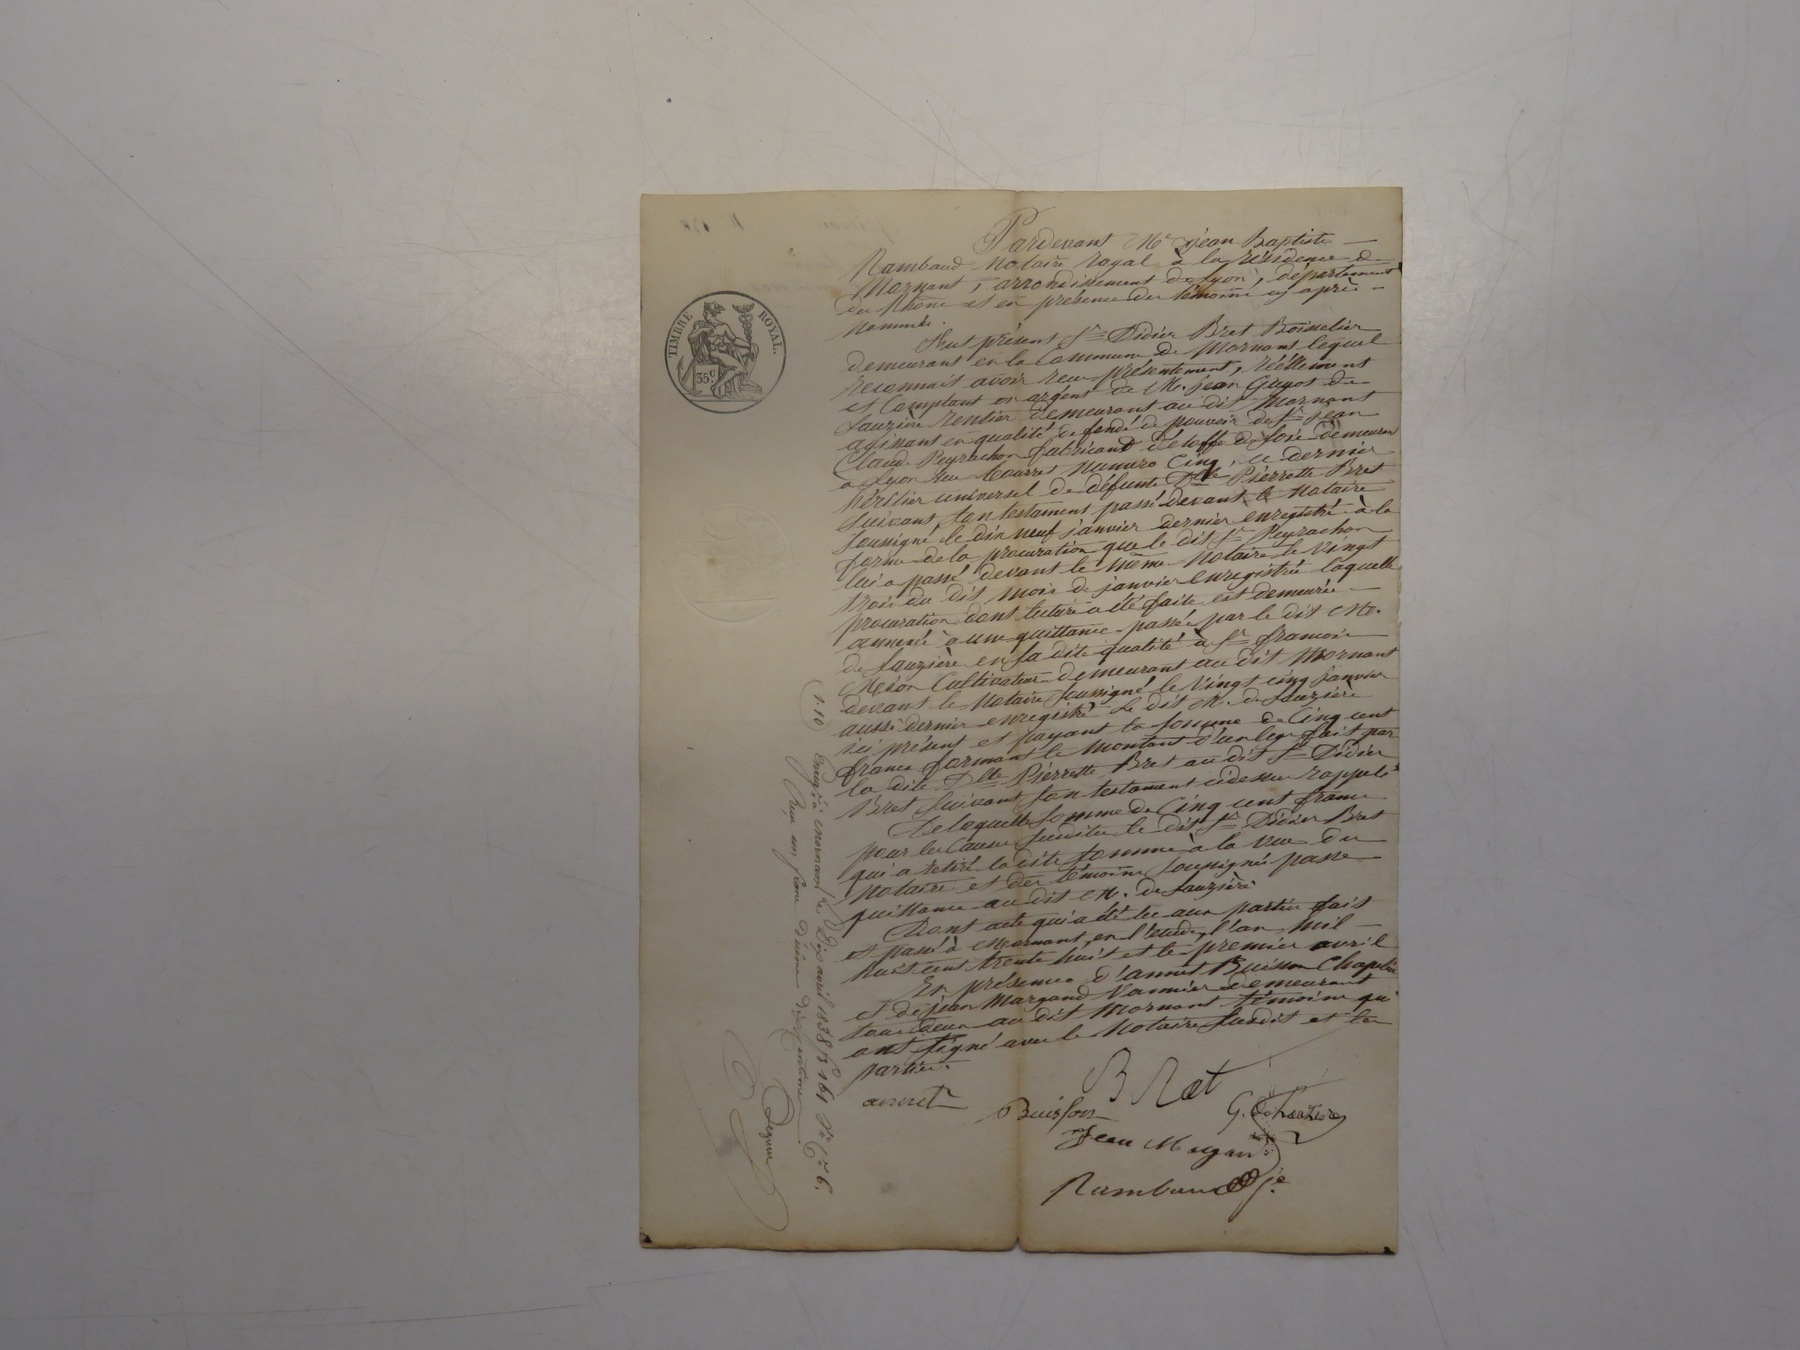 Pardevant Me Jean Baptiste
Rambaud Notaire royal à la résidence de
Mornant, arrondissement de Lyon, département
du Rhône et en présence des témoins cy après
nommés.
Fut présent Sr Didier Bret
demeurant en la Commune de Mornant lequel
reconnait avoir reçu présentement, réellement
et Comptant en argent de M. Jean Guyot de
Lauzière rentier demeurant au dit Mornant
agissant en qualité de fondé de pouvoir de Sr Jean
Claude Peyrachon fabricant d'étoffe de soie demeurant
à Lyon rue numéro Cinq, ce dernier
héritier universel de défunte Dlle Pierrette Bret
suivant son testament passé devant le Notaire
soussigné le dix neuf janvier dernier enregistré à la
forme de la procuration que le dit Sr Peyrachon
lui a passé devant le même Notaire le Vingt
trois du dit mois de janvier enregistrée laquelle
procuration dont lecture a été faite est demeurée
annexée à une quittance passée par le dit M.
de Lauzière en sa dite qualité à Sr françois
Cultivateur demeurant au dit Mornant
devant le Notaire soussigné le Vingt cinq janvier
aussi dernier enregistré Le dit M. de Lauzière
ici présent et payant la somme de Cinq cent
francs formant le montant d'un legs fait par
la dite Dlle Pierrette Bret au dit Sr Didier
Bret suivant son testament cidessus rappelé
De laquelle somme de Cinq cent francs
pour les Causes susdites le dit Sr Didier Bret
qui a retiré la dite somme à la vue du
Notaire et des témoins soussignés passe
quittance au dit M. de Lauzière
Dont acte qui a été lu aux parties fait
et passé à Mornant, en l'étude, l'an mil
huit cent trente huit et le premier avril
En présence d'annet Buisson Chapelier
et de jean Margand Vannier demeurant
tous deux au dit Mornant témoins qui
ont signé avec le Notaire susdit et les
parties.
Bret
annet Buisson
G. de Lauzière
Jean Margand
Rambaud
TIMBRE ROYAL.
35c
Enregré à Mornant le Dix avril 1838 fo 161
Reçu un franc dixième Dix Centimes